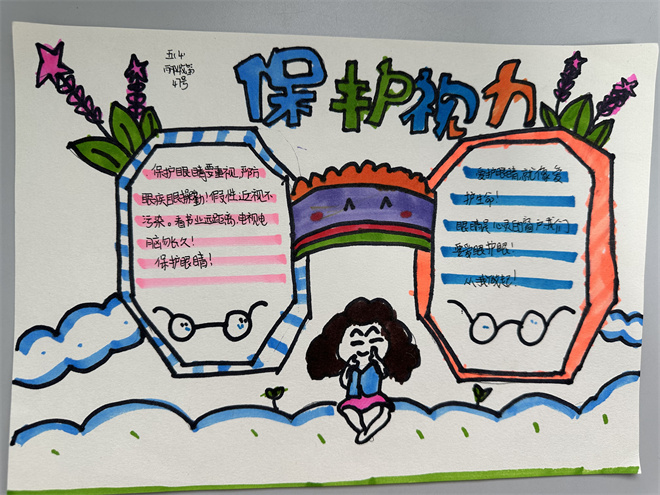 五.4
47号
保护视力
保护眼睛要重视,预防
眼疾眼操勤!假性近视不
污染。看书业远距离,电视电
脑勿长久!
保护眼睛!
爱护眼睛,就像爱
护生命!
眼睛是心灵的窗户我们
要爱眼护眼!
从我做起!